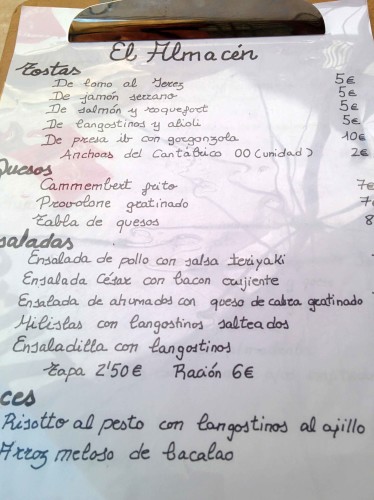 El Almacén
Tostas
De lomo al Jerez 5€
De jamón serrano 5€
De salmón y roquefort 5€
De langostinos y alioli 5€
De presa ib con gorgonzola 10€
Anchoas del Cantábrico 00 (unidad) 2€
Quesos
Cammembert frito 7€
Provolone gratinado 7
Tabla de quesos 8
saladas
Ensalada de pollo con salsa teriyaki
Ensalada César con bacon crujiente
Ensalada de ahumados con queso de cabra gratinado
con langostinos salteados
Ensaladilla con langostinos
Tapa 2'50€ Ración 6€
ces
Risotto al pesto con langostinos al ajillo
Arroz meloso de bacalao